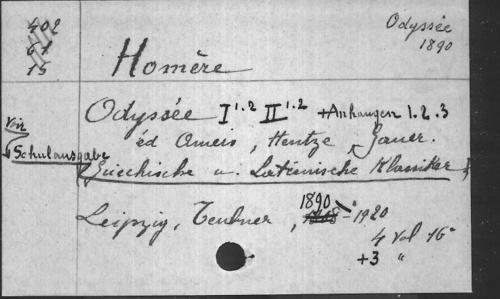 402
61
15
Odyssée
1890
Homère
Odyssée I 1.2 II 1.2 + Anhangen 1.2.3
éd Ameis, Hentze, Cauer.
Voir
Schulausgabe
(Griechische u. Lateinische Klassiker)
Leipzig, Teubner, 1890 - 1920
4 Vol 16°
+3 "